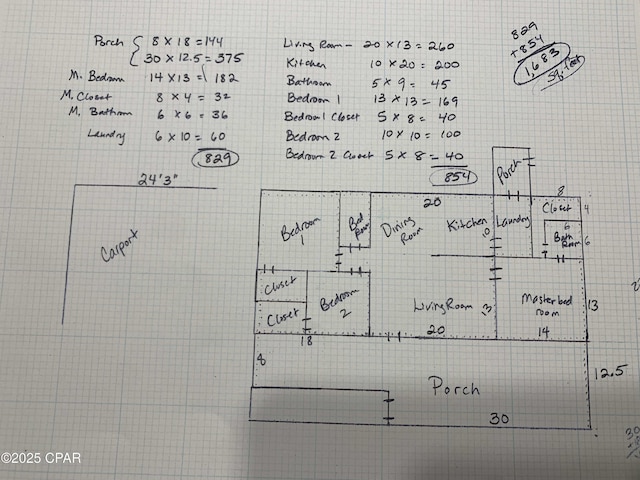 Porch { 8 x 18 = 144
30 x 12.5 = 375
M. Bedroom 14 x 13 = 182
M. Closet 8 x 4 = 32
M. Bathroom 6 x 6 = 36
Laundry 6 x 10 = 60
829
Living Room - 20 x 13 = 260
Kitchen 10 x 20 = 200
Bathroom 5 x 9 = 45
Bedroom 1 13 x 13 = 169
Bedroom 1 Closet 5 x 8 = 40
Bedroom 2 10 x 10 = 100
Bedroom 2 Closet 5 x 8 = 40
854
829
+ 854
1,683
sq. feet
24'3"
Carport
Porch
20
8
Bedroom
1
Dining
Room
Kitchen
10
Laundry
Closet
4
6
Bath
Room
6
Closet
Closet
Bedroom
2
Living Room
13
20
Master bed
room
14
13
18
8
Porch
12.5
30
©2025 CPAR